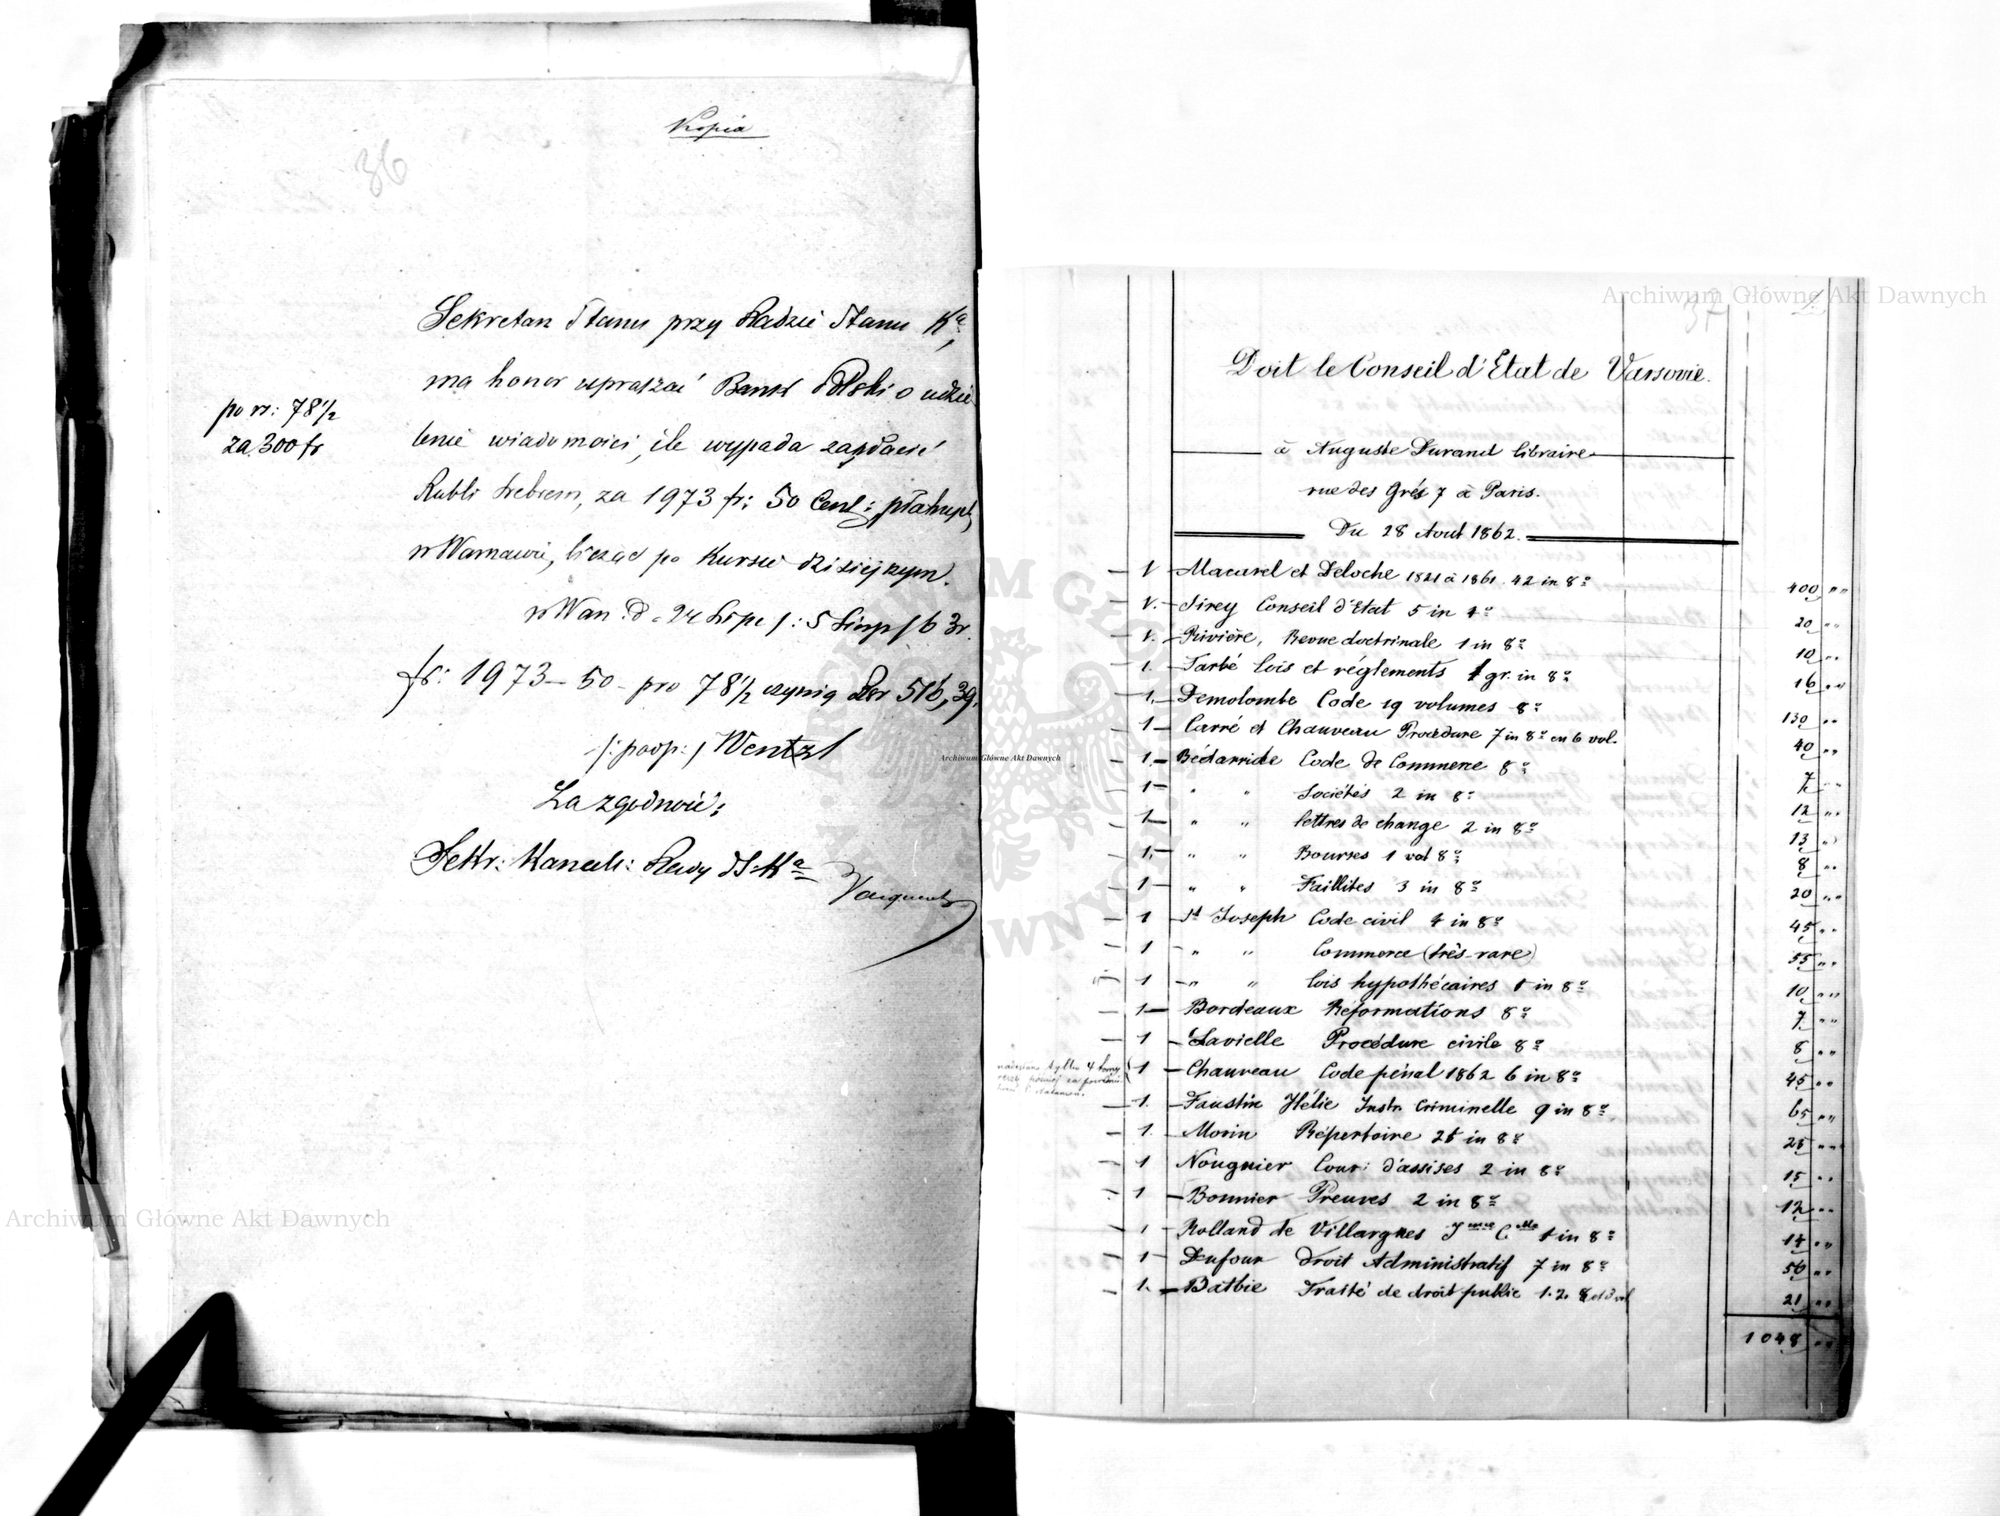 Kopia
36
Sekretarz Stanu przy Radzie Stanu Ka,
ma honor upraszać Bank Polski o udzie
lenie wiadomości, ile wypada zapłacić
Rubli srebrem, za 1973 fr: 50 Cent:
w Warszawie, licząc po Kursie dzisiejszym.
po rs: 78 1/2
za 300 fr
w Wars. d. 24 Lipc /: 5 Sierp / 63 r.
fr: 1973 – 50 – pro 78 1/2 czynią Rsr 516,39.
/: podp: / Wentzl
Za zgodność:
Sekr: Kancel: Rady St. Ka
Archiwum Główne Akt Dawnych
37
Doit le Conseil d'Etat de Varsovie.
à Auguste Durand libraire
rue des Grés 7 à Paris.
Du 28 Aout 1862.
1 Macarel et Deloche 1821 à 1861. 42 in 8o 400 " "
1. Sirey Conseil d'Etat 5 in 4o 20 " "
1. Rivière, Revue doctrinale 1 in 8o 10 " "
1. Tarbé lois et réglements 1 gr. in 8o 16 " "
1. Demolombe Code 19 volumes 8o 130 " "
1 Carré et Chauveau Procédure 7 in 8o en 6 vol. 40 " "
1. Bédarride Code de Commerce 8o 7 " "
1 " " Sociétés 2 in 8o 12 " "
1 " " lettres de change 2 in 8o 13 " "
1. " " Bourses 1 vol 8o 8 " "
1 " " Faillites 3 in 8o 20 " "
1 St Joseph Code civil 4 in 8o 45 " "
1 " " Commerce (très-rare) 55 " "
1 " " lois hypothécaires 1 in 8o 10 " "
1 Bordeaux Réformations 8o 7 " "
1 Lavielle Procédure civile 8o 8 " "
tylko 4 tomy
1 Chauveau Code pénal 1862 6 in 8o 45 " "
1. Faustin Hélie Instr. Criminelle 9 in 8o 65 " "
1. Morin Répertoire 2t in 8o 25 " "
1 Nouguier Cour: d'assises 2 in 8o 15 " "
1 Bonnier Preuves 2 in 8o 12 " "
1 Rolland de Villargues 1 in 8o 14 " "
1 Dufour Droit Administratif 7 in 8o 56 " "
1. Batbie Traité de droit public 1. 2. 21 " "
1048 " "
Archiwum Główne Akt Dawnych
Archiwum Główne Akt Dawnych